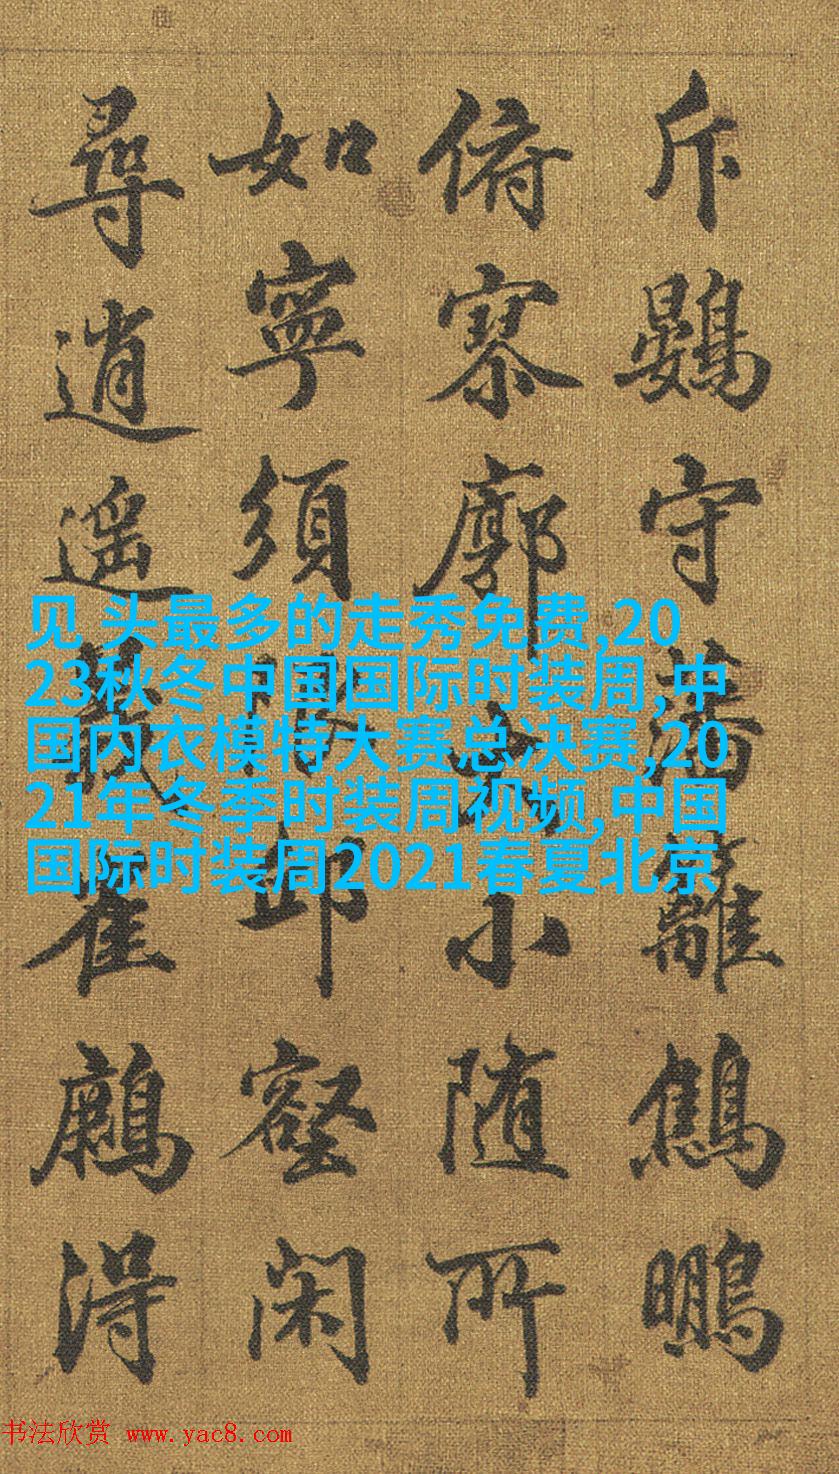 斥鷃守藩籬鷦䳟
俯寥廓小随所
如寧須邱壑閑
尋逍遥得
见 头最多的走秀免费,20
23秋冬中国国际时装周,中
国内衣模特大赛总决赛,20
21年冬季时装周视频,中国
国际时装周2021春夏北京
书法欣赏 www.yac8.com